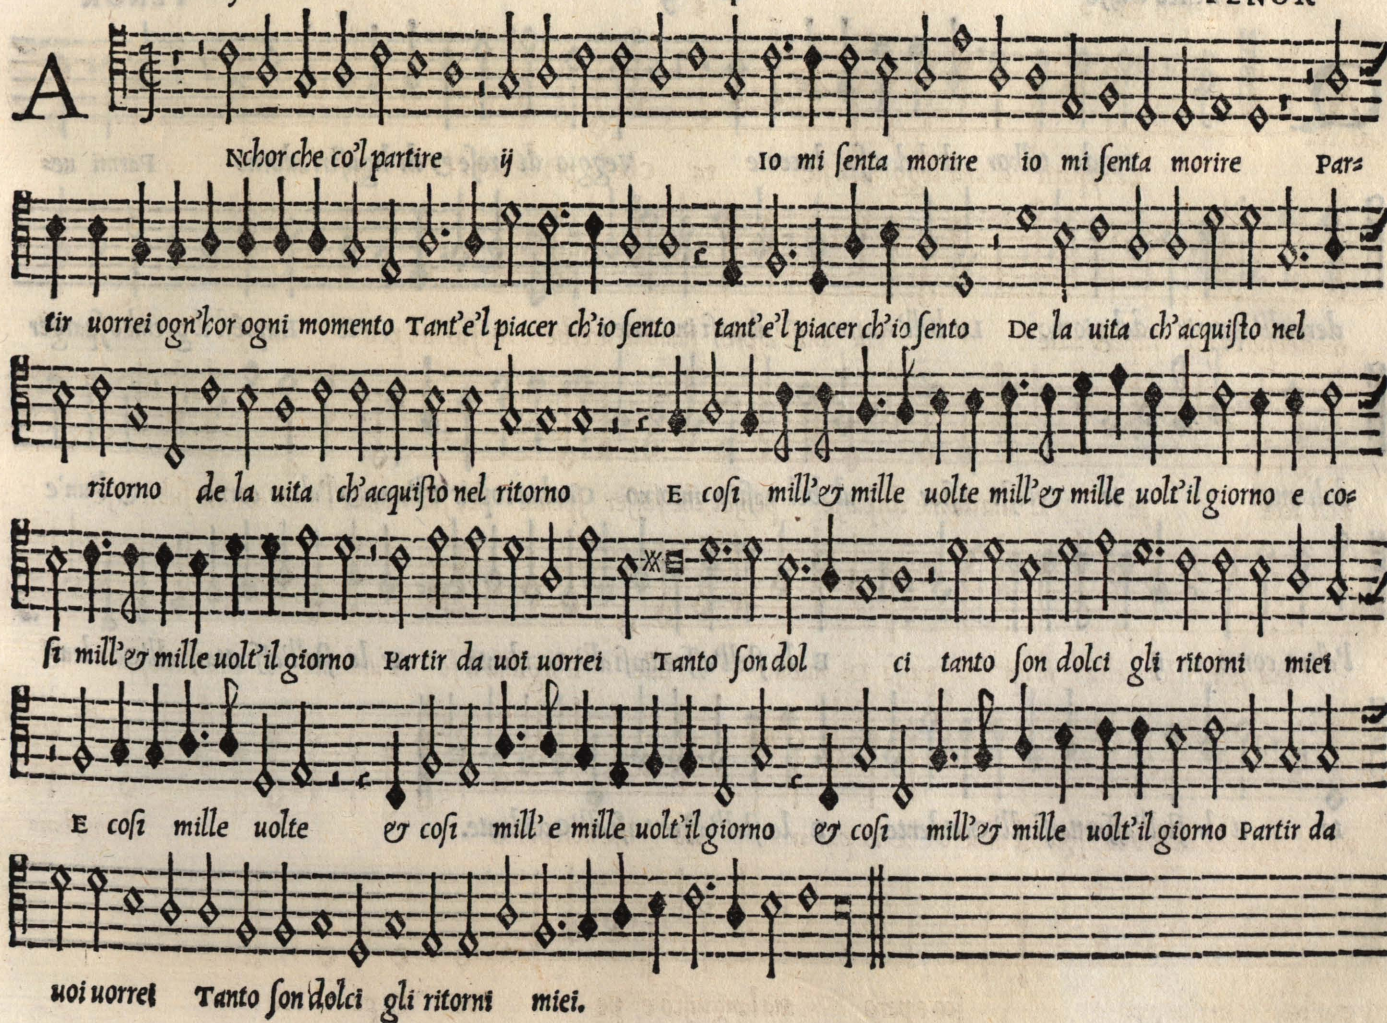 TENOR
A
Nchor che co'l partire ij IO mi ſenta morire io mi ſenta morire Par=
tir uorrei ogn'hor ogni momento Tant'e'l piacer ch'io ſento tant'e'l piacer ch'io ſento De la uita ch'acquiſto nel
ritorno de la uita ch'acquiſto nel ritorno E coſi mill'& mille uolte mill'& mille uolt'il giorno e co=
ſi mill'& mille uolt'il giorno Partir da uoi uorrei Tanto ſon dol ci tanto ſon dolci gli ritorni miei
E coſi mille uolte & coſi mill' e mille uolt'il giorno & coſi mill'& mille uolt'il giorno Partir da
uoi uorrei Tanto ſon dolci gli ritorni miei.